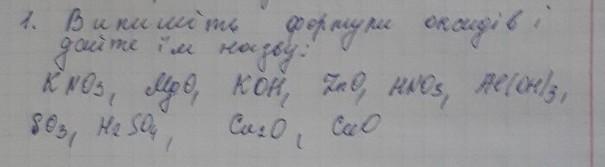 1. Випишіть формули оксидів і
дайте їм назву:
KNO3, MgO, KOH, ZnO, HNO3, Al(OH)3,
SO3, H2SO4, Cu2O, CuO